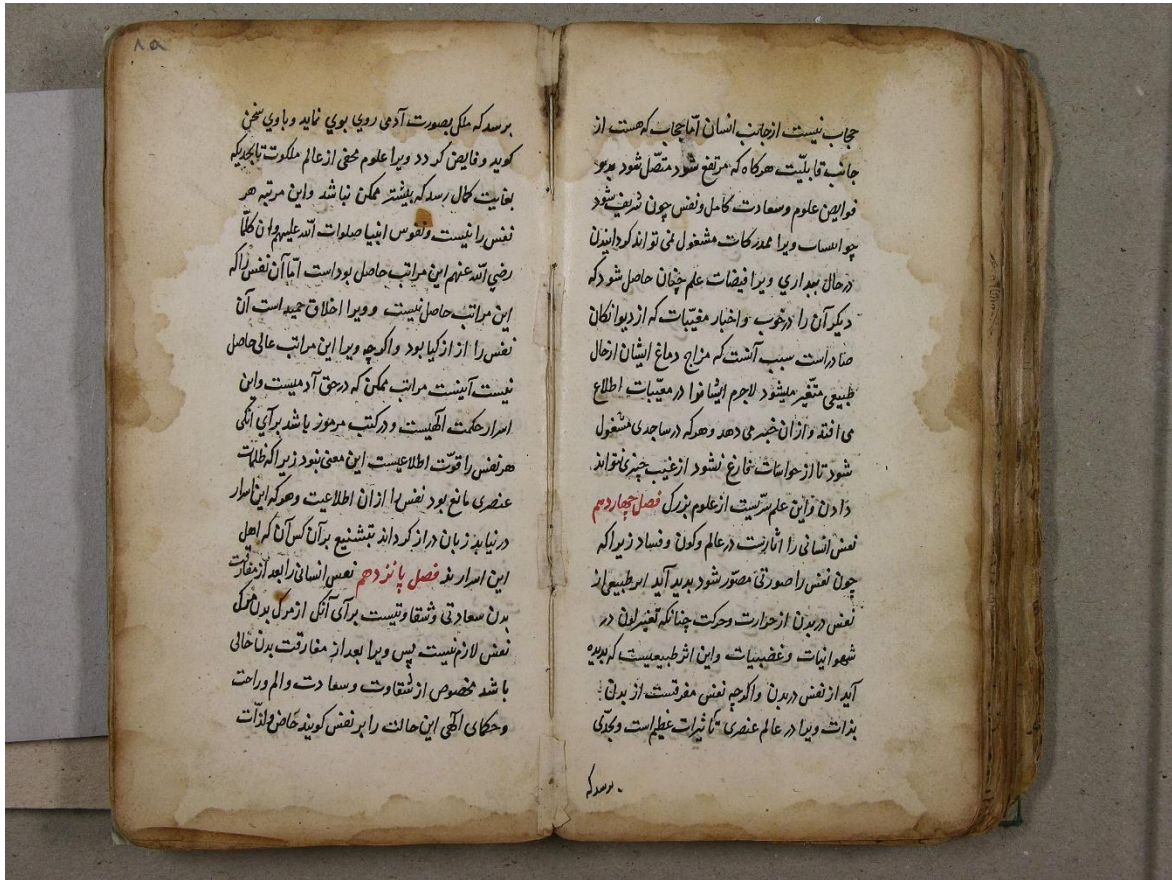 حجاب نیست از جانب انسان امّا حجاب که هست از
جانب قابلیّت هرکاه که مرتفع شود متّصل شود بدو
فوایض علوم وسعادت کامل ونفس چون شریف شود
ویرا بمدرکات مشغول نمی تواند کردانیدن
در حال بیداری ویرا فیضات علم چنان حاصل شود که
دیکر آن را در خوب واخبار مغیّبات که از دیوانکان
صادر است سبب آنست که مزاج دماغ ایشان از حال
طبیعی متغیر میشود لاجرم ایشانرا در مغیبات اطلاع
می افتد و ازان خبر می دهد وهرکه در مشغول
شود تا از حواسات فارغ نشود از غیب چیزی نتواند
دادن واین علم سرّیست از علوم بزرک فصل چهاردهم
نفس انسانی را اثاریست در عالم وکون وفساد زیرا که
چون نفس را صورتی مصوّر شود بدید آید اثر طبیعی از
نفس در بدن از حرارت وحرکت چنانکه تغیر لون در
شهوانیات وغضبیات واین اثر طبیعیست که بدیده
آید از نفس در بدن واکرچه نفس مفرقست از بدن
بذات ویرا در عالم عنصری تاثیرات عظیم است وبحدّی
برسد که
۸۵
برسد که ملکی بصورت آدمی روی بوی نماید و باوی سخن
کوید و فایض کردد ویرا علوم مخفی از عالم ملکوت تا بحدیکه
بغایت کمال رسد که بیشتر ممکن نباشد واین مرتبه هر
نفس را نیست ونفوس انبیا صلوات الله علیهم
رضی الله عنهم این مراتب حاصل بوداست امّا آن نفس را که
این مراتب حاصل نیست و ویرا اخلاق حمید است آن
نفس را از ازکیا بود واکرچه ویرا این مراتب عالی حاصل
نیست آینست مراتب ممکن که در حق آدمیست واین
اسرار حکمت الهیست و در کتب مرموز باشد برآی آنکی
هر نفس را قوّت اطلاعیست این معنی بنود زیرا که ظلمات
عنصری مانع بود نفس را ازان اطلاعیت وهرکه این اسرار
در نیابد زبان دراز کرداند بتشنیع برآن کس آن که اهل
این اسرار بو فصل پانزدهم نفس انسانی را بعد از مفارقت
بدن سعادتی وشقاوتیست برآی آنکی از مرک بدن مرک
نفس لازم نیست پس ویرا بعد از مفارقت بدن حالی
باشد مخصوص از شقاوت وسعادت والم وراحت
وحکمای الهی این حالت را بر نفس کویند خاص ولذّات